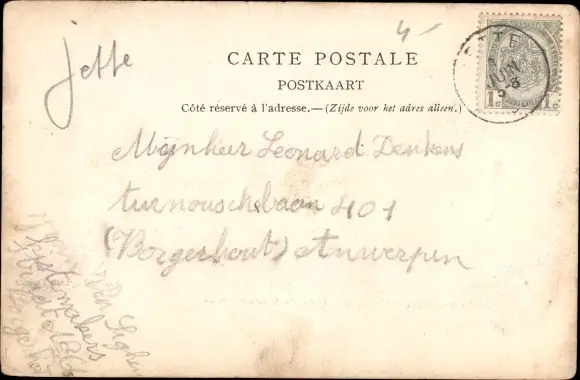 4-
Jette
CARTE POSTALE
POSTKAART
Côté réservé à l'adresse.—(Zijde voor het adres alleen.)
JUIN
1c 1c
Mijnheer Leonard Denkens
turnouschebaan 401
(Borgerhout) Antwerpen